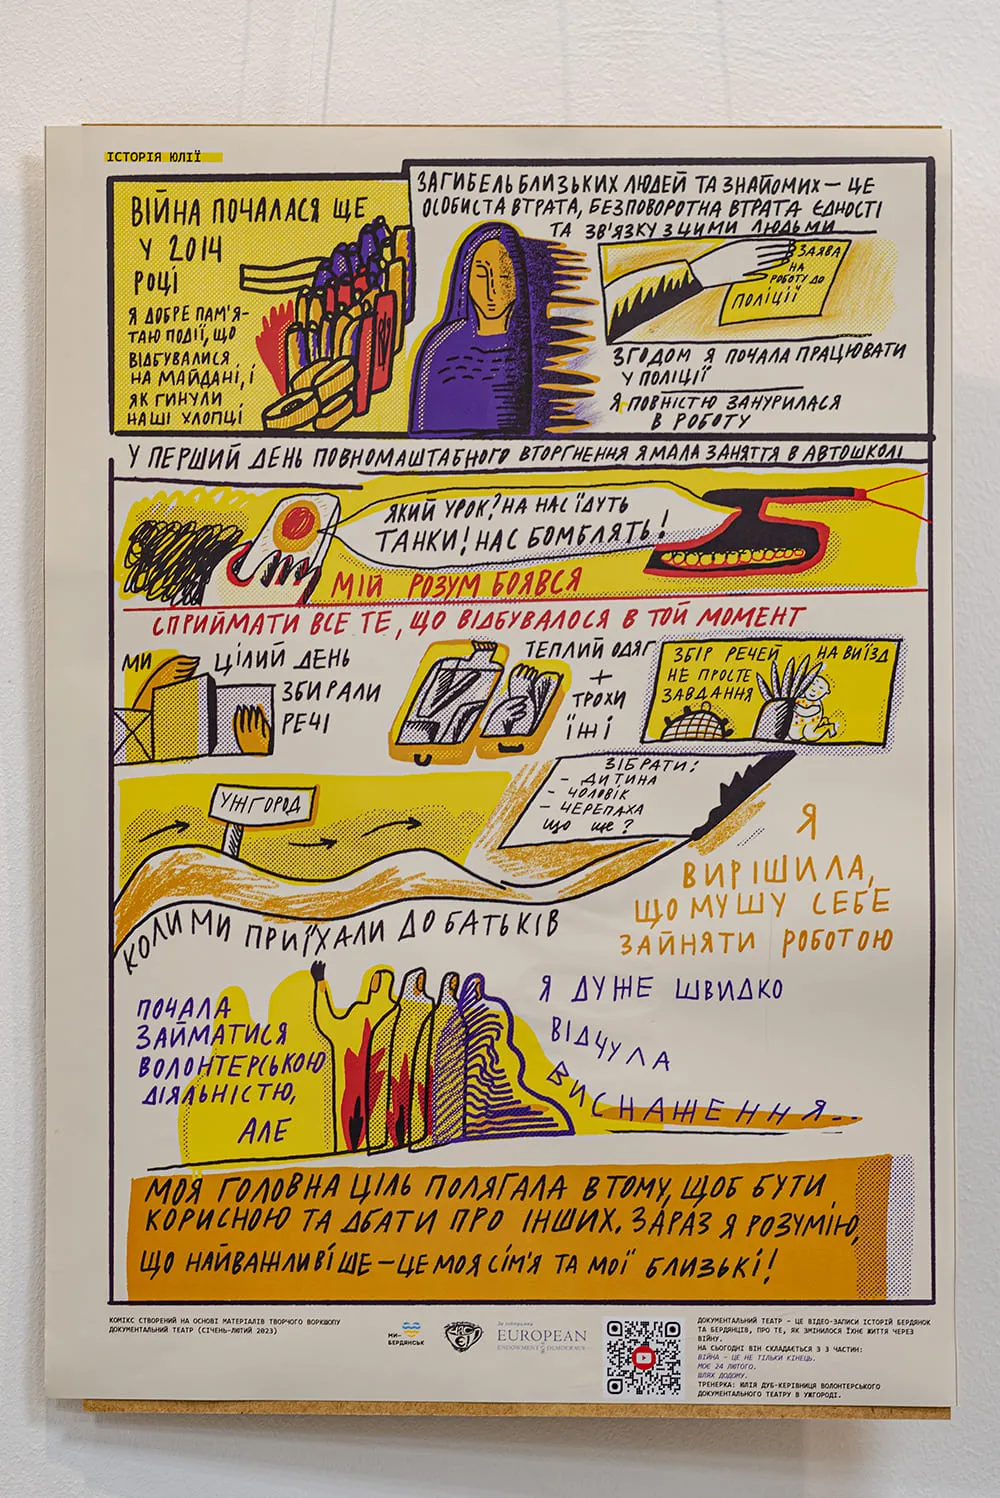 ІСТОРІЯ ЮЛІЇ
ВІЙНА ПОЧАЛАСЯ ЩЕ
У 2014
РОЦІ
Я ДОБРЕ ПАМ'Я-
ТАЮ ПОДІЇ, ЩО
ВІДБУВАЛИСЯ
НА МАЙДАНІ, І
ЯК ГИНУЛИ
НАШІ ХЛОПЦІ
ЗАГИБЕЛЬ БЛИЗЬКИХ ЛЮДЕЙ ТА ЗНАЙОМИХ — ЦЕ
ОСОБИСТА ВТРАТА, БЕЗПОВОРОТНА ВТРАТА ЄДНОСТІ
ТА ЗВ'ЯЗКУ З ЦИМИ ЛЮДЬМИ
ЗАЯВА
НА
РОБОТУ ДО
ПОЛІЦІЇ
ЗГОДОМ Я ПОЧАЛА ПРАЦЮВАТИ
У ПОЛІЦІЇ
Я ПОВНІСТЮ ЗАНУРИЛАСЯ
В РОБОТУ
У ПЕРШИЙ ДЕНЬ ПОВНОМАШТАБНОГО ВТОРГНЕННЯ Я МАЛА ЗАНЯТТЯ В АВТОШКОЛІ
ЯКИЙ УРОК? НА НАС ЇДУТЬ
ТАНКИ! НАС БОМБЛЯТЬ!
МІЙ РОЗУМ БОЯВСЯ
СПРИЙМАТИ ВСЕ ТЕ, ЩО ВІДБУВАЛОСЯ В ТОЙ МОМЕНТ
МИ ЦІЛИЙ ДЕНЬ
ЗБИРАЛИ
РЕЧІ
ТЕПЛИЙ ОДЯГ
+
ТРОХИ
ЇЖІ
ЗБІР РЕЧЕЙ НА ВИЇЗД
НЕ ПРОСТЕ
ЗАВДАННЯ
УЖГОРОД
ЗІБРАТИ:
- ДИТИНА
- ЧОЛОВІК
- ЧЕРЕПАХА
ЩО ЩЕ?
Я
ВИРІШИЛА,
ЩО МУШУ СЕБЕ
ЗАЙНЯТИ РОБОТОЮ
КОЛИ МИ ПРИЇХАЛИ ДО БАТЬКІВ
ПОЧАЛА
ЗАЙМАТИСЯ
ВОЛОНТЕРСЬКОЮ
ДІЯЛЬНІСТЮ,
АЛЕ
Я ДУЖЕ ШВИДКО
ВІДЧУЛА
ВИСНАЖЕННЯ...
МОЯ ГОЛОВНА ЦІЛЬ ПОЛЯГАЛА В ТОМУ, ЩОБ БУТИ
КОРИСНОЮ ТА ДБАТИ ПРО ІНШИХ. ЗАРАЗ Я РОЗУМІЮ,
ЩО НАЙВАЖЛИВІШЕ — ЦЕ МОЯ СІМ'Я ТА МОЇ БЛИЗЬКІ!
КОМІКС СТВОРЕНИЙ НА ОСНОВІ МАТЕРІАЛІВ ТВОРЧОГО ВОРКШОПУ
ДОКУМЕНТАЛЬНИЙ ТЕАТР (СІЧЕНЬ-ЛЮТИЙ 2023)
МИ-
БЕРДЯНСЬК
За підтримки
EUROPEAN
ENDOWMENT DEMOCRACY
ДОКУМЕНТАЛЬНИЙ ТЕАТР - ЦЕ ВІДЕО-ЗАПИСИ ІСТОРІЙ БЕРДЯНОК
ТА БЕРДЯНЦІВ, ПРО ТЕ, ЯК ЗМІНИЛОСЯ ЇХНЄ ЖИТТЯ ЧЕРЕЗ
ВІЙНУ.
НА СЬОГОДНІ ВІН СКЛАДАЄТЬСЯ З 3 ЧАСТИН:
ВІЙНА - ЦЕ НЕ ТІЛЬКИ КІНЕЦЬ.
МОЄ 24 ЛЮТОГО.
ШЛЯХ ДОДОМУ.
ТРЕНЕРКА: ЮЛІЯ ДУБ-КЕРІВНИЦЯ ВОЛОНТЕРСЬКОГО
ДОКУМЕНТАЛЬНОГО ТЕАТРУ В УЖГОРОДІ.